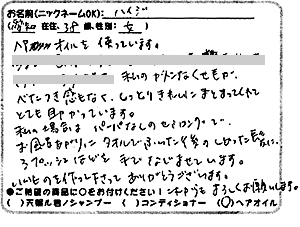 お名前(ニックネームOK): ハイジ
(愛知 在住、38 歳、性別: 女 )
ヘアオイルを使っています。
私のガンコなくせ毛が、
べたつき感もなく、しっとりきれいにまとまってくれて
とても助かっています。
私の場合はパーマなしのセミロングで、
お風呂あがりにタオルでふいた後のしめった髪に、
3プッシュほどを手でなじませています。
いいものを作って下さってありがとうございます。
●ご希望の商品に○をお付けください! これからもよろしくお願いします。
( )天使ル香ノシャンプー ( )コンディショナー (○)ヘアオイル